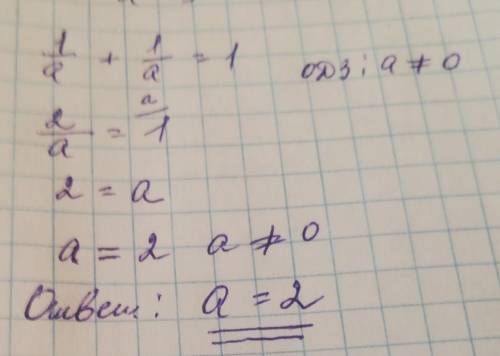 1/a + 1/a = 1 ОДЗ: a ≠ 0
2/a = a/1
2 = a
a = 2 a ≠ 0
Ответ: a = 2